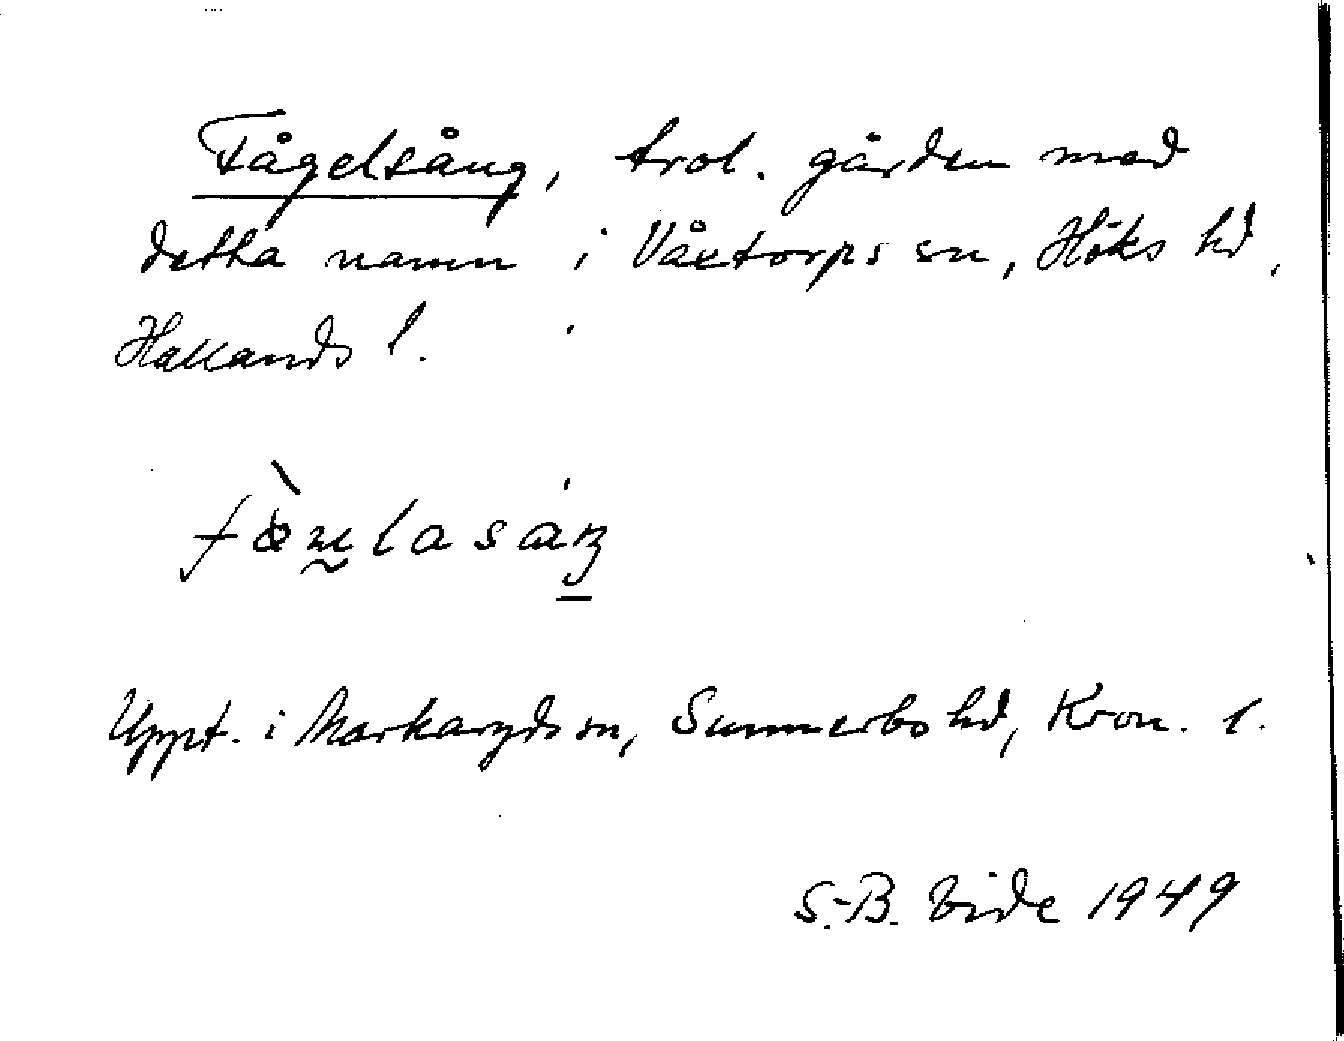 Fågelsång, trol. gården med
detta namn i Våxtorps sn, Höks hd,
Hallands l.
Uppt. i Markaryds sn, Sunnerbo hd, Kron. l.
S.-B. Vide 1949